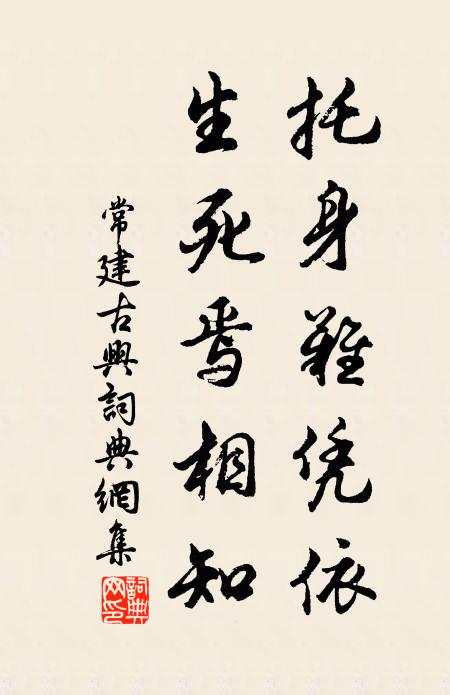 托身難凭依
生死焉相知
常建古興詞典網集
詞典網印